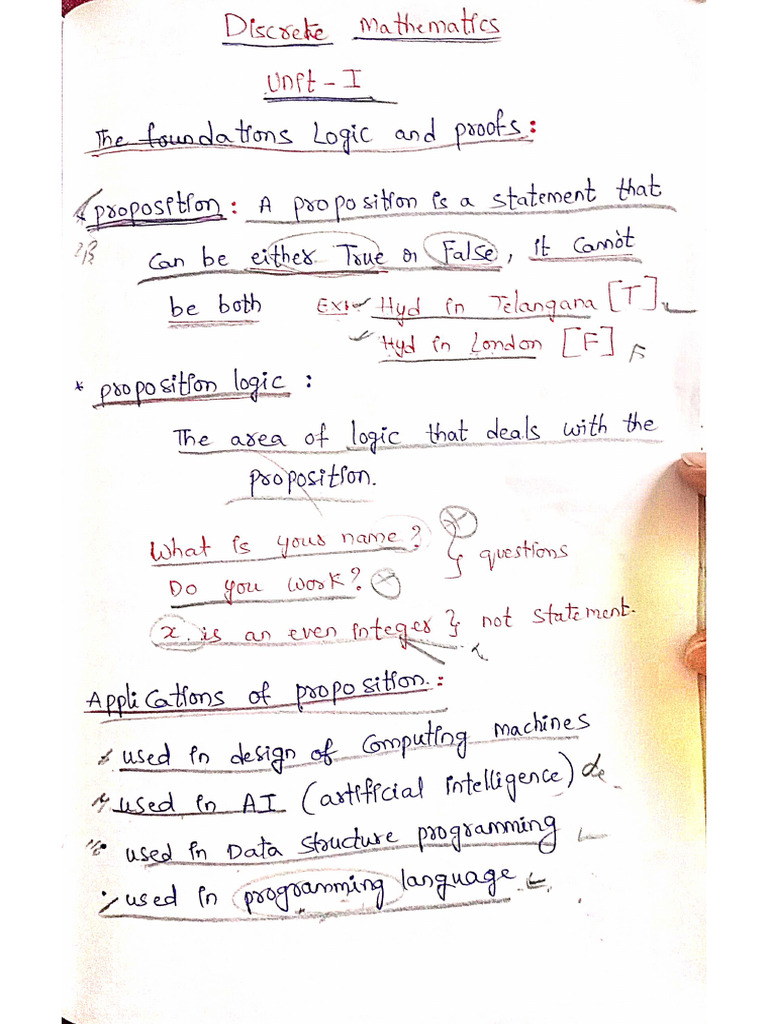 Discrete Mathematics
Unit - I
The foundations Logic and proofs:
* proposition: A proposition is a statement that
can be either True or False, it cannot
be both Ex:- Hyd in Telangana [T]
Hyd in London [F] F
* proposition logic:
The area of logic that deals with the
proposition.
What is your name? } questions
Do you work?
x. is an even integer } not statement.
Applications of proposition:
used in design of computing machines
used in AI (artificial intelligence)
used in Data structure programming
used in programming language